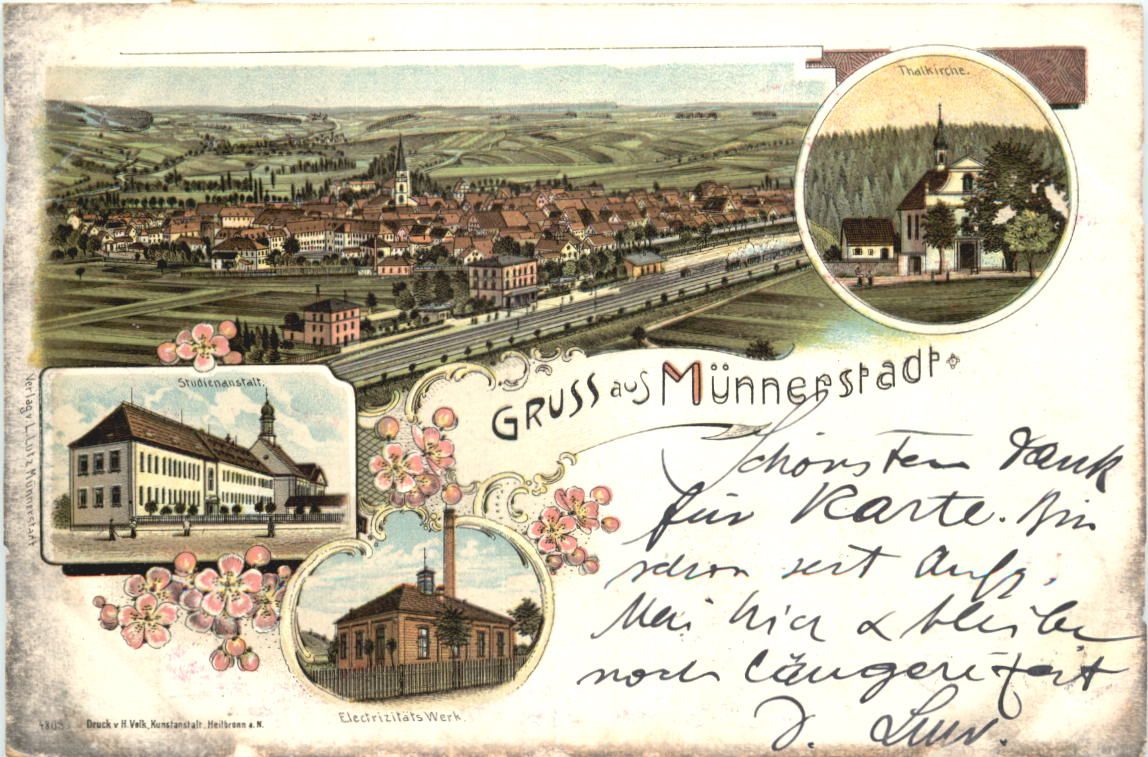 Thalkirche.
Studienanstalt.
GRUSS aus Münnerstadt
Verlag v. L. Lutz Münnerstadt
Schönsten Dank
für Karte. Bin
schon seit Anfg.
Mai hier & bleibe
noch längere Zeit
Electrizitäts Werk.
Druck v H. Volk, Kunstanstalt, Heilbronn a. N.